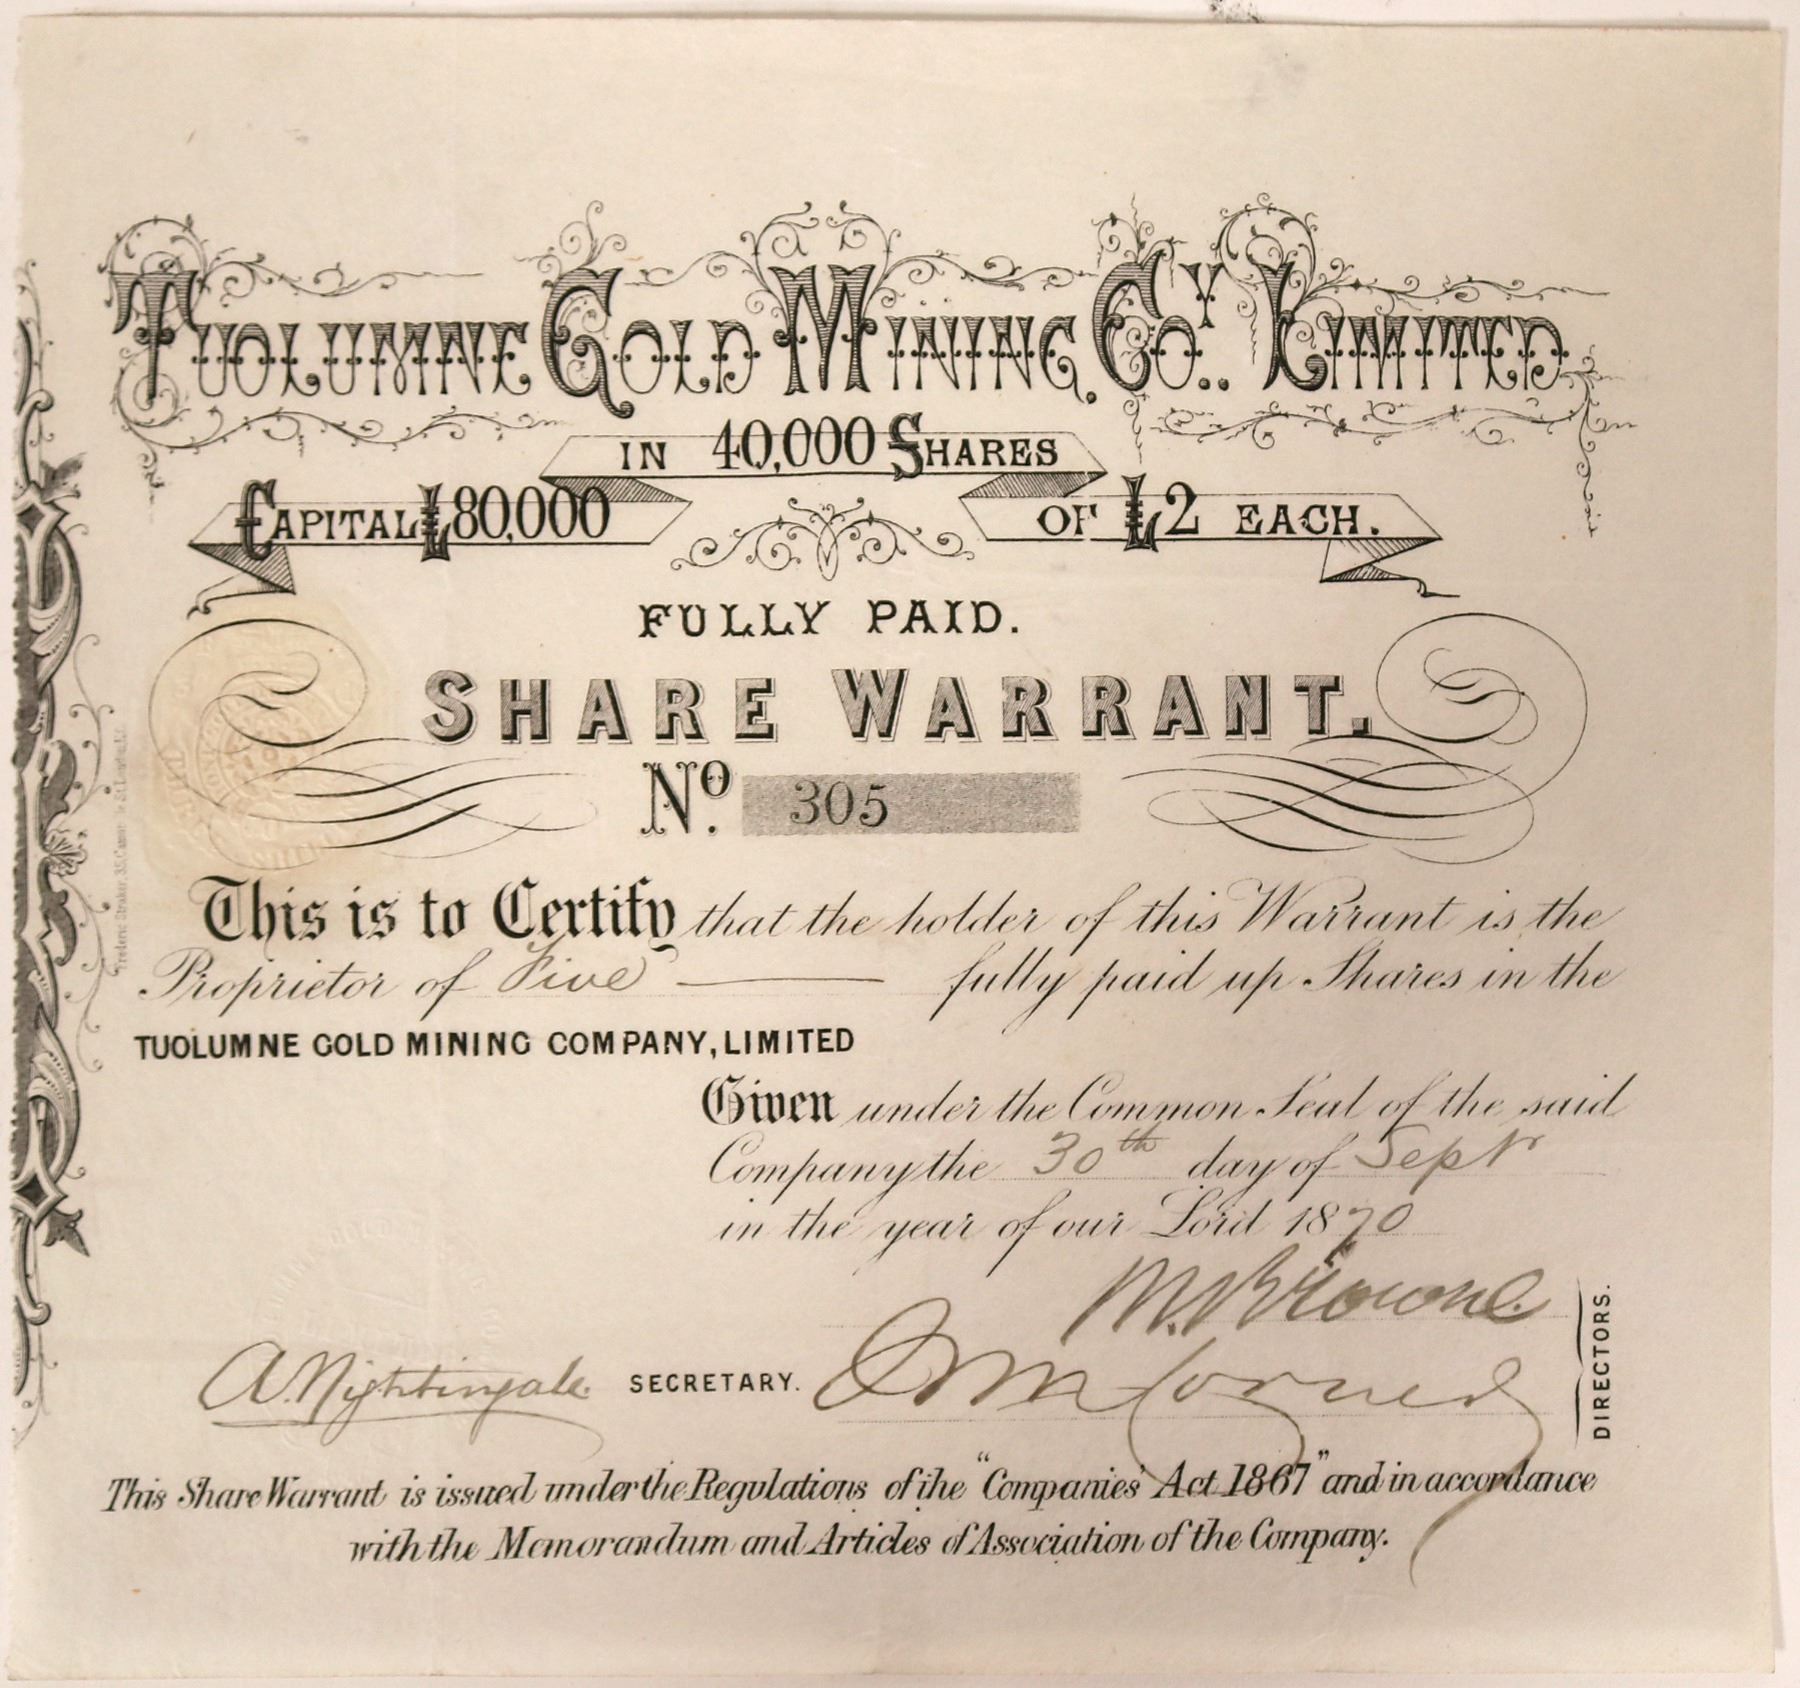 TUOLUMNE GOLD MINING COY. LIMITED
IN 40,000 SHARES
CAPITAL £80,000
OF £2 EACH.
FULLY PAID.
SHARE WARRANT.
No. 305
This is to Certify that the holder of this Warrant is the
Proprietor of Five fully paid up Shares in the
TUOLUMNE GOLD MINING COMPANY, LIMITED
Given under the Common Seal of the said
Company the 30th day of Sept
in the year of our Lord 1870
M. Browne
A. Nightingale SECRETARY.
DIRECTORS.
This Share Warrant is issued under the Regulations of the "Companies' Act 1867" and in accordance
with the Memorandum and Articles of Association of the Company.